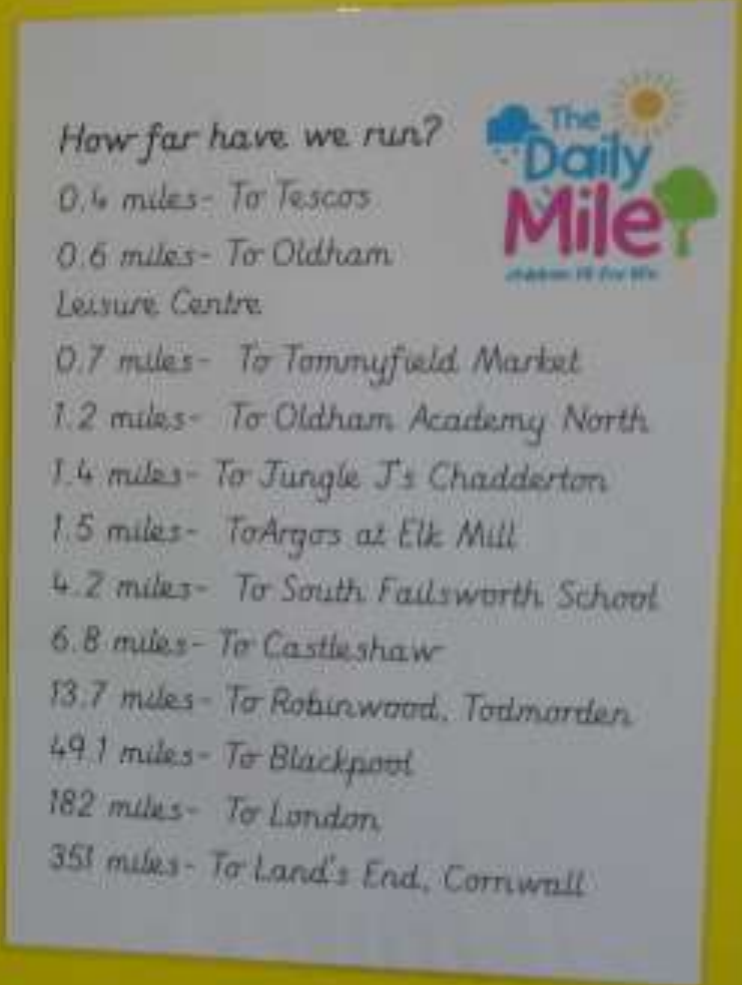 The
Daily
Mile
How far have we run?
0.4 miles- To Tescos
0.6 miles- To Oldham
Leisure Centre
0.7 miles- To Tommyfield Market
1.2 miles- To Oldham Academy North
1.4 miles- To Jungle J's Chadderton
1.5 miles- ToArgos at Elk Mill
4.2 miles- To South Failsworth School
6.8 miles- To Castleshaw
13.7 miles- To Robinwood, Todmorden
49.1 miles- To Blackpool
182 miles- To London
351 miles- To Land's End, Cornwall